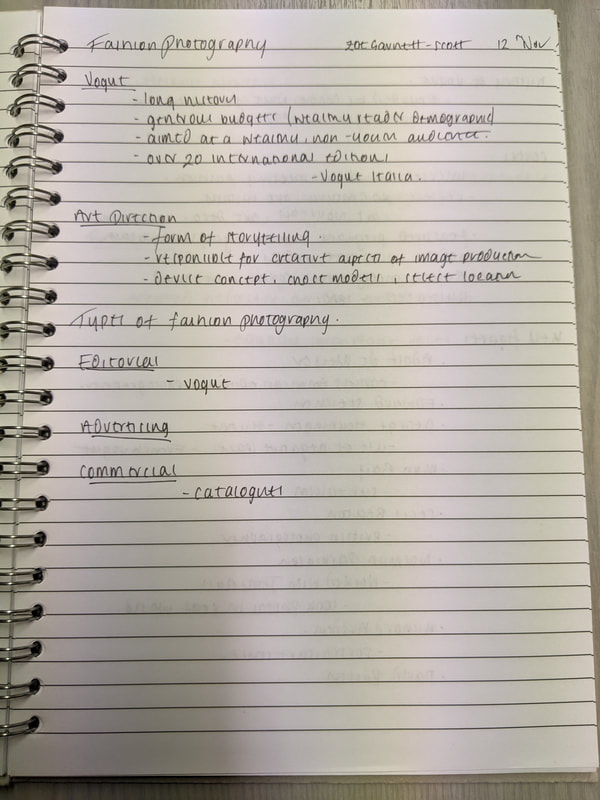 Fashion Photography Zoe Gauntt-Scott 12 Nov
Vogue
- long history
- generous budgets (wealthy reader demographic)
- aimed at a wealthy, non-youth audience.
- over 20 international editions
- Vogue Italia.
Art Direction
- form of storytelling.
- responsible for creative aspects of image production
- devise concept, choose models, select location
Types of fashion photography.
Editorial
- Vogue
Advertising
Commercial
- catalogues